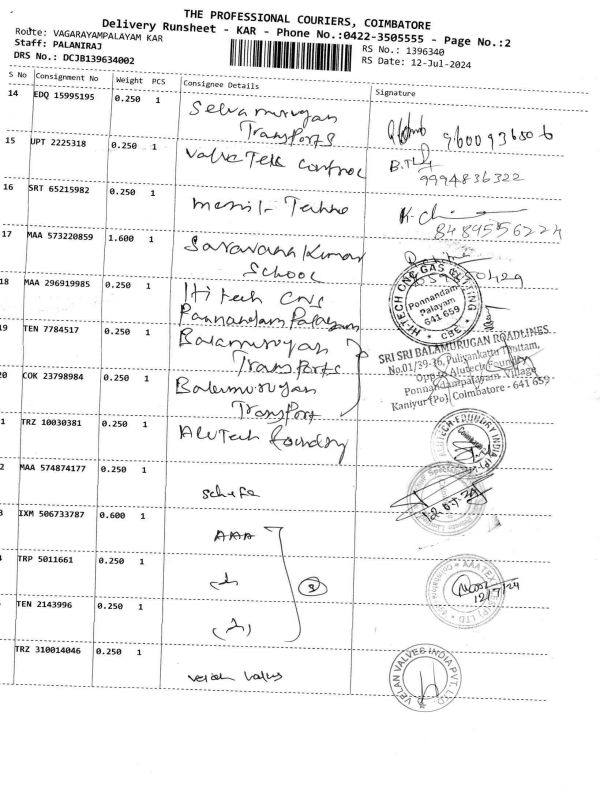 THE PROFESSIONAL COURIERS, COIMBATORE
Delivery Runsheet - KAR - Phone No.:0422-3505555 - Page No.:2
Route: VAGARAYAMPALAYAM KAR
RS No.: 1396340
Staff: PALANIRAJ
RS Date: 12-Jul-2024
DRS No.: DCJB139634002
S No Consignment No Weight PCS Consignee Details Signature
14 EDQ 15995195 0.250 1 Selva murugan
Transports
9600936506
15 UPT 2225318 0.250 1 Valve Tek Control
9994836322
16 SRT 65215982 0.250 1
K.
8489556224
17 MAA 573220859 1.600 1 Saravana Kumar
School
18 MAA 296919985 0.250 1 Hi tech CNC
Pannandam Palayam
HI-TECH CNC GAS CUTTING
Ponnandam
Palayam
641 659
CBE
19 TEN 7784517 0.250 1 Balamurugan
Transports
SRI SRI BALAMURUGAN ROADLINES
No.01/39-36, Puliyankattu Thottam,
Opp. Alutech Foundry
Ponnandampalayam Village
Kaniyur (Po), Coimbatore - 641 659
20 COK 23798984 0.250 1 Balamurugan
Transport
1 TRZ 10030381 0.250 1 Alutech foundry
ALUTECH FOUNDRY INDIA (P) L
2 MAA 574874177 0.250 1
3 IXM 506733787 0.600 1 AAA
4 TRP 5011661 0.250 1
3
12/7/24
TEN 2143996 0.250 1
TRZ 310014046 0.250 1 velan valves
VELAN VALVES INDIA PVT. LTD.